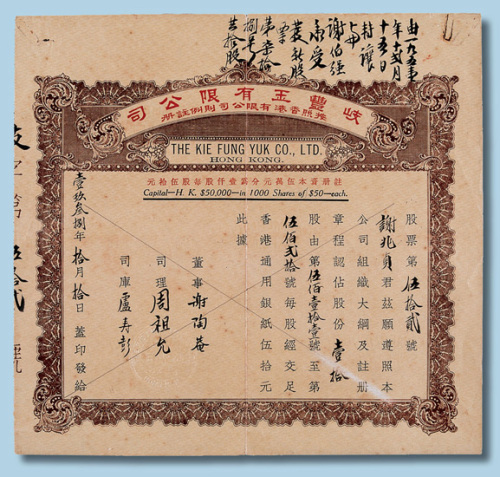 十五日
謝伯經
承受
發新股
票
共拾股
岐豐玉有限公司
按照香港有限公司則例註冊
THE KIE FUNG YUK CO., LTD.
HONG KONG.
註冊資本伍萬元分為壹仟股每股伍拾元
Capital—H. K. $50,000—in 1000 Shares of $50—each.
股票第伍拾貳號
謝兆貞君茲願遵照本
公司組織大綱及註冊
章程認佔股份壹拾
股由第伍佰壹拾壹號至第
伍佰貳拾號每股經交足
香港通用銀紙伍拾元
此據
董事謝陶菴
司理周祖允
司庫盧寿彭
壹玖叁捌年拾月拾日蓋印發給
字第伍拾貳